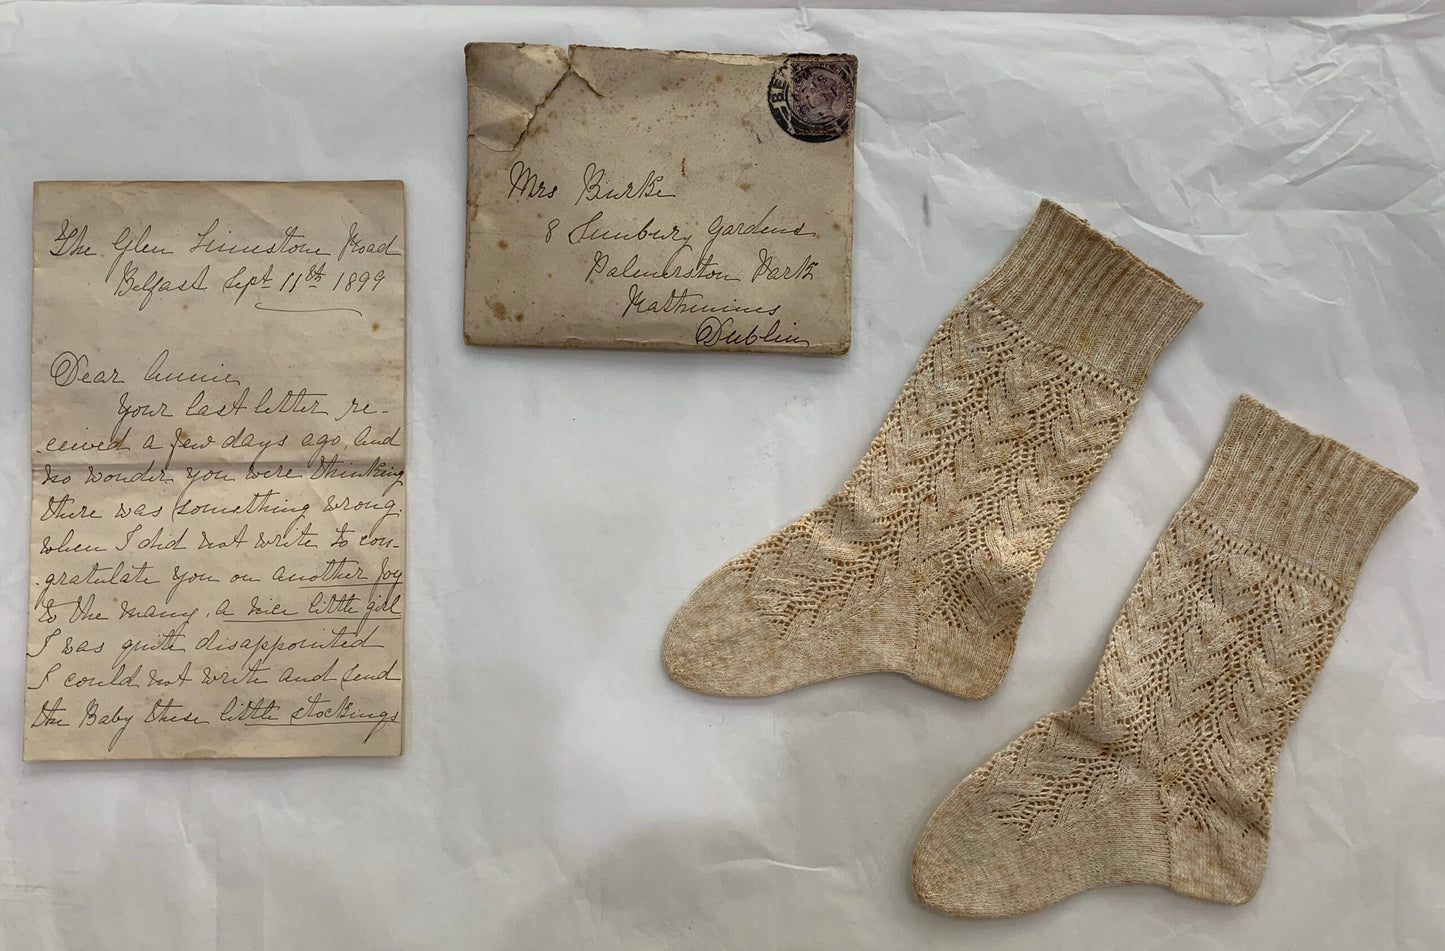 The Glen Limestone Road
Belfast Sept 11th 1899
Dear Annie
Your last letter re-
-ceived a few days ago and
no wonder you were thinking
there was something wrong.
when I did not write to con-
-gratulate you on another Joy
to the many, a nice little girl
I was quite disappointed
I could not write and send
the Baby these little stockings
Mrs Burke
8 Sunbury Gardens
Palmerston Park
Rathmines
Dublin